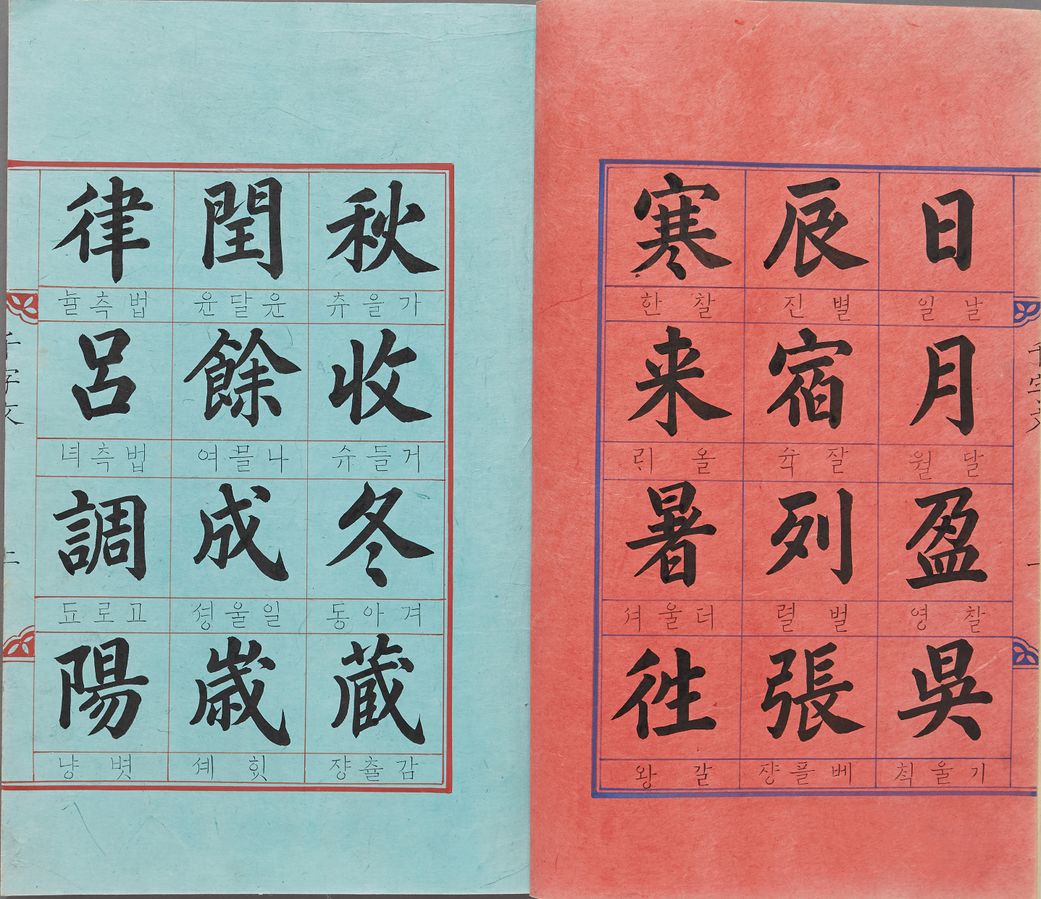 千字文
一
日
날 일
月
달 월
盈
찰 영
吳
기울 칙
辰
별 진
宿
잘 슉
列
벌 렬
張
베플 쟝
寒
찰 한
来
올 ᄅᆡ
暑
더울 셔
徃
갈 왕
秋
가을 츄
收
거들 슈
冬
겨아 동
蔵
감츌 쟝
閏
윤달 윤
餘
나믈 여
成
일울 셩
歲
힛 셰
律
법측 뉼
呂
법측 녀
調
고로 됴
陽
볏 냥
千字文